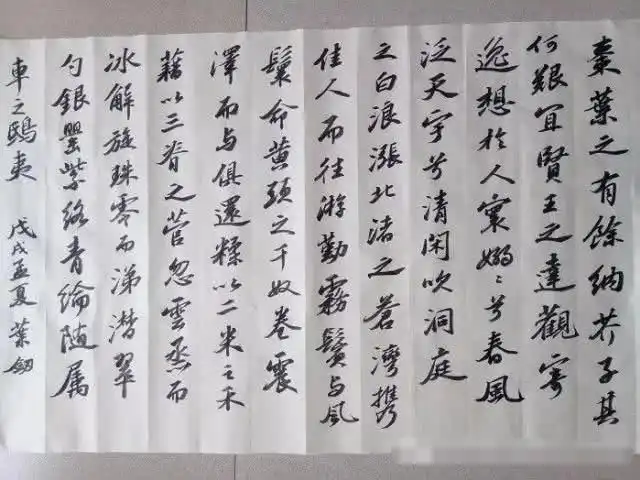 棗葉之有餘納芥子其
何艱宜賢王之達觀寄
逸想於人寰嫋〻兮春風
泛天宇兮清閑吹洞庭
之白浪漲北渚之蒼灣攜
佳人而往游勤霧鬢與風
鬟命黄頭之千奴卷震
澤而与俱還糅以二米之禾
藉以三脊之菅忽雲烝而
冰解旋珠零而涕潸翠
勺銀罌紫絡青綸随属
車之鴟夷 戊戌孟夏 葉釗